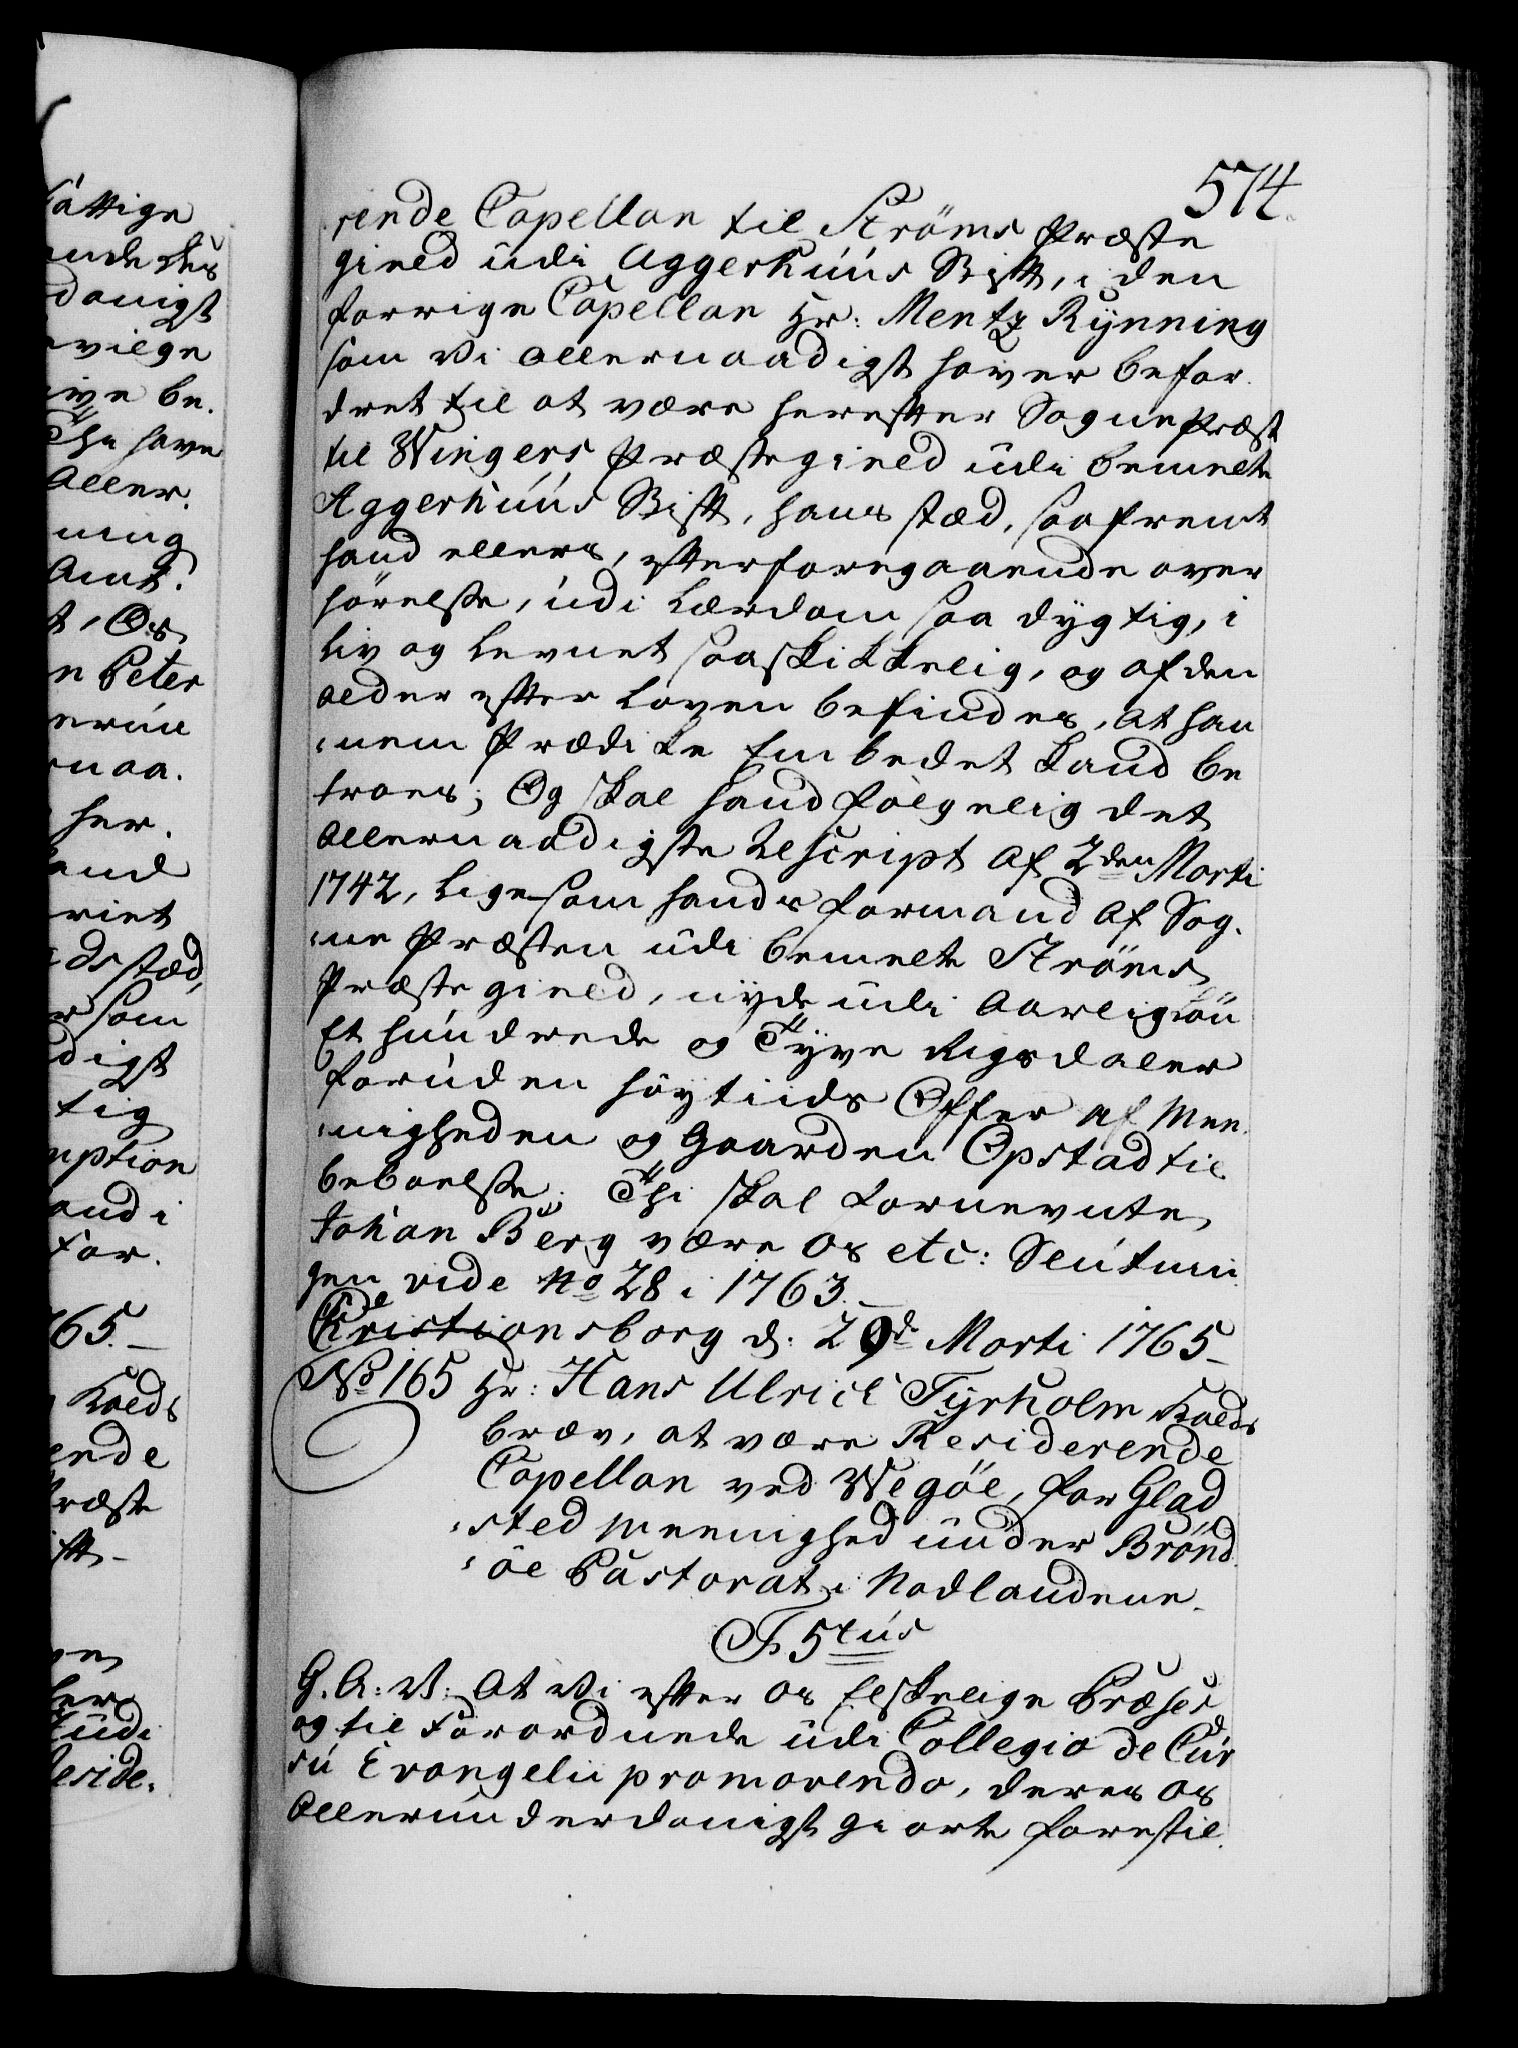 574.
rende Capellan til Ströms Præste
gield udi Aggerhuus Stift, i den
forrige Capellan Hr: Mentz Rynning
som Vi allernaadigst haver befor
dret til at være herefter Sogne Præst
til Wingers Præstegield udi bemelte
Aggerhuus Stift, hans stæd, saafremt
hand ellers, efter foregaaende over
hörelse, udi Lærdom saa dygtig, i
Liv og Levnet saa skikkelig, og af den
alder efter Loven befindes, at han
nem Prædike Embedet kand be
troes; Og skal hand fölgelig det
allernaadigste Rescript af 2den Marti
1742, ligesom hands formand af Sog.
ne Præsten udi bemelte Ströms
Præstegield, nyde udi aarlig Lön
Et hundrede og Tyve Rigsdaler
foruden höytiids Offer af Mee
nigheden og Gaarden Opstad til
beboelse; Thi skal fornevnte
Johan Berg være os etc: Slutnin
gen vide No 28 i 1763.
Christiansborg d: 29d Marti 1765
No 165 Hr: Hans Ulrich Tyrholm Kalds
bræv, at være Residerende
Capellan ved Wegöe, for Glad
sted Meenighed under Brönd
öe Pastorat i Nodlandene.
F. 5tus
G. A: V: At Vi efter os Elskelige Præses
og til Forordnede udi Collegio de Cur
su Evangelii promovendo, deres os
allerunderdanigst giorte forestil
fattige
danigst
vilge
ive be.
Thi have
Aller.
ning
Amt.
t, Os
n Peter
naa.
her.
and
riet
ds stæd,
r som
digst
tig
mption
and i
For.
765.
Kalds
ende
Præste
ift
udi
Reside.